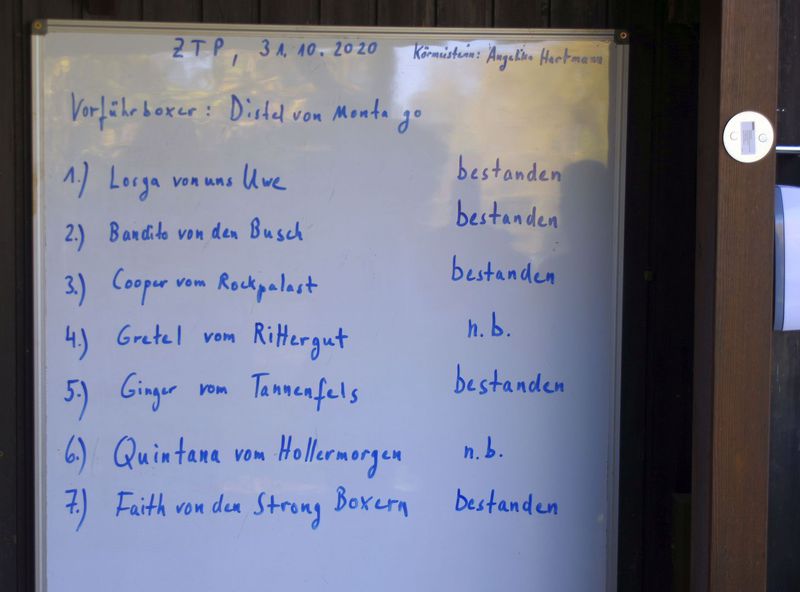 ZTP, 31.10.2020 Körmeisterin: Angelika Hartmann
Vorführboxer: Distel von Monta go
1.) Lorga von uns Uwe bestanden
2.) Bandito von den Busch bestanden
3.) Cooper vom Rockpalast bestanden
4.) Gretel vom Rittergut n.b.
5.) Ginger vom Tannenfels bestanden
6.) Quintana vom Hollermorgen n.b.
7.) Faith von den Strong Boxern bestanden